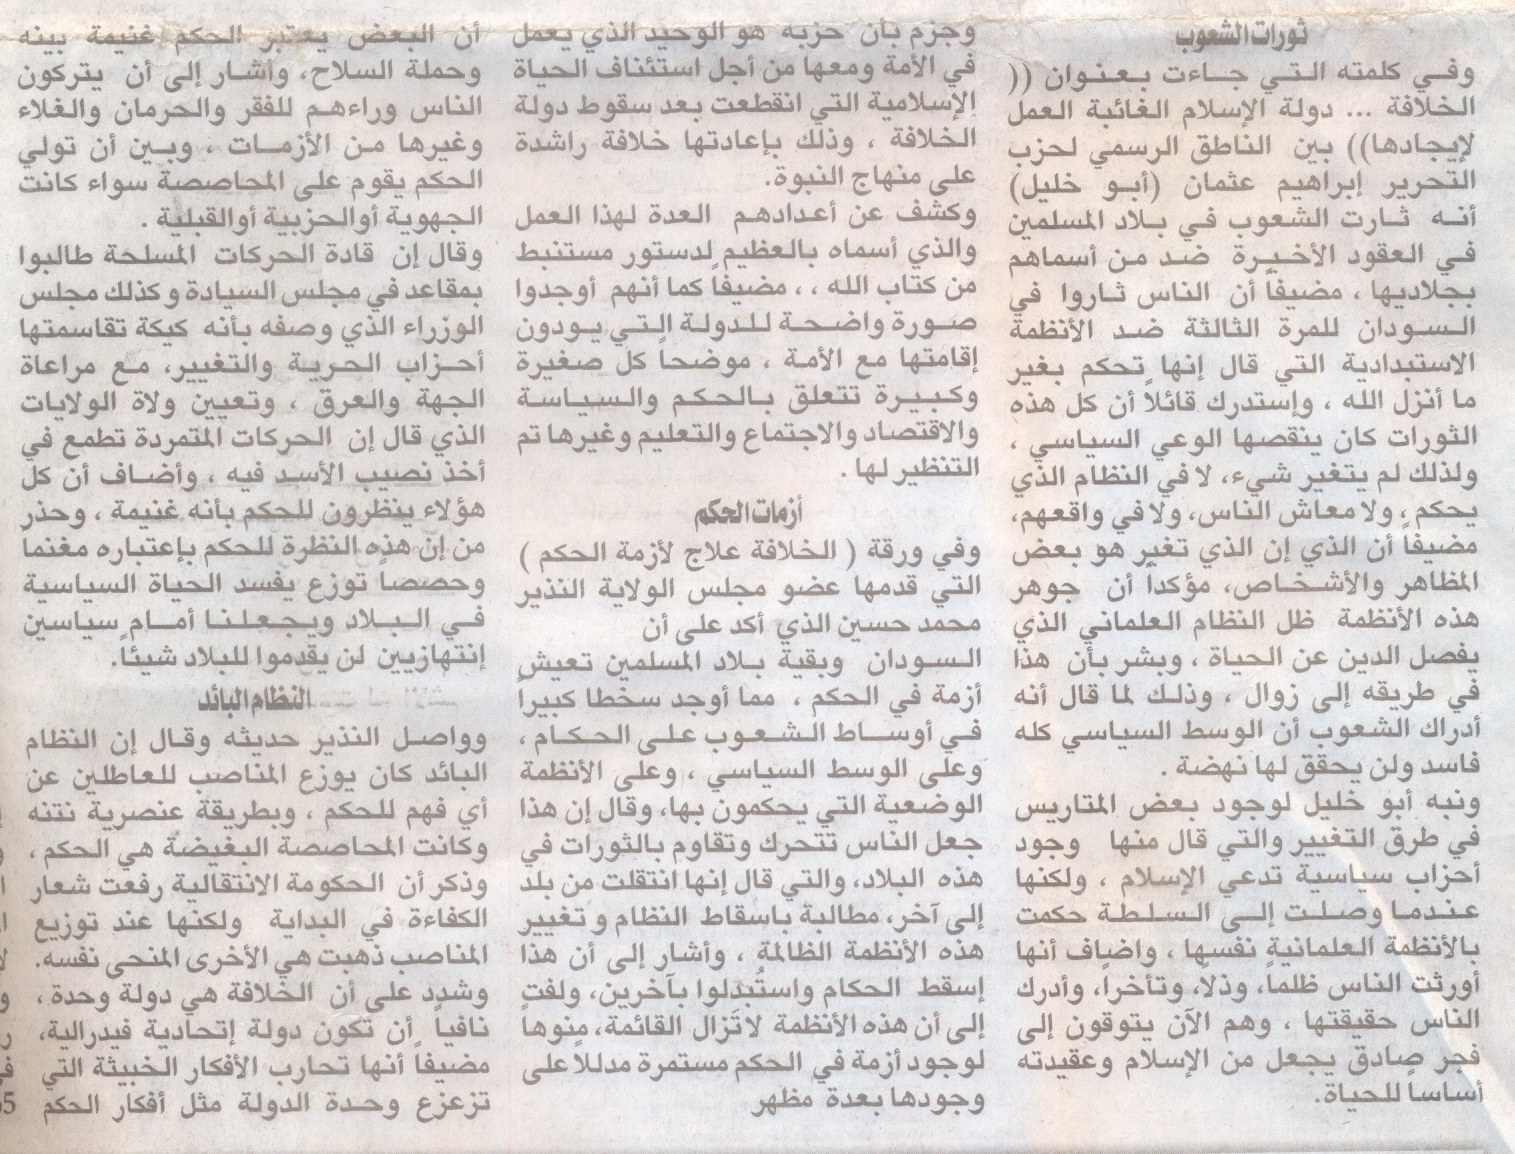 ثورات الشعوب
وفي كلمته التي جاءت بعنوان ((
الخلافة ... دولة الإسلام الغائبة العمل
لإيجادها)) بين الناطق الرسمي لحزب
التحرير إبراهيم عثمان (أبو خليل)
أنه ثارت الشعوب في بلاد المسلمين
في العقود الأخيرة ضد من أسماهم
بجلاديها ، مضيفاً أن الناس ثاروا في
السودان للمرة الثالثة ضد الأنظمة
الاستبدادية التي قال إنها تحكم بغير
ما أنزل الله ، وإستدرك قائلاً أن كل هذه
الثورات كان ينقصها الوعي السياسي ،
ولذلك لم يتغير شيء، لا في النظام الذي
يحكم ، ولا معاش الناس، ولا في واقعهم،
مضيفاً أن الذي إن الذي تغير هو بعض
المظاهر والأشخاص، مؤكداً أن جوهر
هذه الأنظمة ظل النظام العلماني الذي
يفصل الدين عن الحياة ، وبشر بأن هذا
في طريقه إلى زوال ، وذلك لما قال أنه
أدراك الشعوب أن الوسط السياسي كله
فاسد ولن يحقق لها نهضة .
ونبه أبو خليل لوجود بعض المتاريس
في طرق التغيير والتي قال منها وجود
أحزاب سياسية تدعي الإسلام ، ولكنها
عندما وصلت إلى السلطة حكمت
بالأنظمة العلمانية نفسها ، واضاف أنها
أورثت الناس ظلماً، وذلاً، وتأخراً، وأدرك
الناس حقيقتها ، وهم الآن يتوقون إلى
فجر صادق يجعل من الإسلام وعقيدته
أساساً للحياة.
وجزم بأن حزبه هو الوحيد الذي يعمل
في الأمة ومعها من أجل استئناف الحياة
الإسلامية التي انقطعت بعد سقوط دولة
الخلافة ، وذلك بإعادتها خلافة راشدة
على منهاج النبوة.
وكشف عن أعدادهم العدة لهذا العمل
والذي أسماه بالعظيم لدستور مستنبط
من كتاب الله ، ، مضيفاً كما أنهم أوجدوا
صورة واضحة للدولة التي يودون
إقامتها مع الأمة ، موضحاً كل صغيرة
وكبيرة تتعلق بالحكم والسياسة
والاقتصاد والاجتماع والتعليم وغيرها تم
التنظير لها .
أزمات الحكم
وفي ورقة ( الخلافة علاج لأزمة الحكم )
التي قدمها عضو مجلس الولاية النذير
محمد حسين الذي أكد على أن
السودان وبقية بلاد المسلمين تعيش
أزمة في الحكم ، مما أوجد سخطا كبيراً
في أوساط الشعوب على الحكام ،
وعلى الوسط السياسي ، وعلى الأنظمة
الوضعية التي يحكمون بها، وقال إن هذا
جعل الناس تتحرك وتقاوم بالثورات في
هذه البلاد، والتي قال إنها انتقلت من بلد
إلى آخر، مطالبة باسقاط النظام و تغيير
هذه الأنظمة الظالمة ، وأشار إلى أن هذا
إسقط الحكام واستُبدلوا بآخرين، ولفت
إلى أن هذه الأنظمة لا تَزال القائمة، منوهاً
لوجود أزمة في الحكم مستمرة مدللاً على
وجودها بعدة مظهر
أن البعض يعتبر الحكم غنيمة بينه
وحملة السلاح، وأشار إلى أن يتركون
الناس وراءهم للفقر والحرمان والغلاء
وغيرها من الأزمات ، وبين أن تولي
الحكم يقوم على المحاصصة سواء كانت
الجهوية أوالحزبية أوالقبلية .
وقال إن قادة الحركات المسلحة طالبوا
بمقاعد في مجلس السيادة وكذلك مجلس
الوزراء الذي وصفه بأنه كيكة تقاسمتها
أحزاب الحرية والتغيير، مع مراعاة
الجهة والعرق ، وتعيين ولاة الولايات
الذي قال إن الحركات المتمردة تطمع في
أخذ نصيب الأسد فيه ، وأضاف أن كل
هؤلاء ينظرون للحكم بأنه غنيمة ، وحذر
من إن هذه النظرة للحكم بإعتباره مغنما
وحصصاً توزع يفسد الحياة السياسية
في البلاد ويجعلنا أمام سياسين
إنتهازيين لن يقدموا للبلاد شيئاً.
النظام البائد
وواصل النذير حديثه وقال إن النظام
البائد كان يوزع المناصب للعاطلين عن
أي فهم للحكم ، وبطريقة عنصرية نتنه
وكانت المحاصصة البغيضة هي الحكم ،
وذكر أن الحكومة الانتقالية رفعت شعار
الكفاءة في البداية ولكنها عند توزيع
المناصب ذهبت هي الأخرى المنحى نفسه.
وشدد على أن الخلافة هي دولة وحدة ،
نافياً أن تكون دولة إتحادية فيدرالية،
مضيفاً أنها تحارب الأفكار الخبيثة التي
تزعزع وحدة الدولة مثل أفكار الحكم